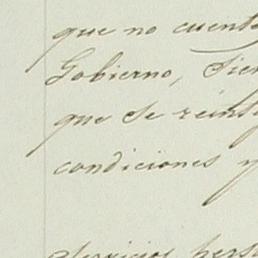 que no cuenta
Gobierno, sien
que se reinte
condiciones y
Servicios pers